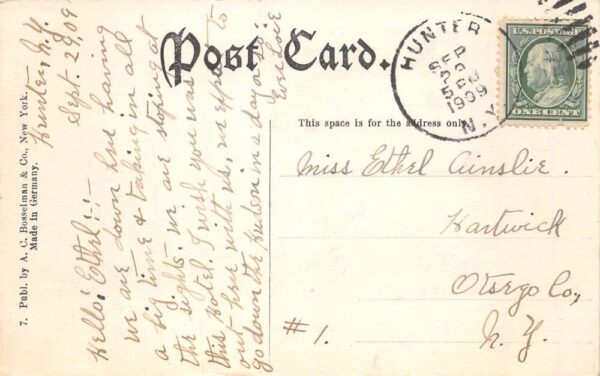 Post Card.
This space is for the address only.
7. Publ. by A. C. Bosselman & Co., New York.
Made in Germany.
Hunter, N.Y.
Sept. 29, 09
Hello! Ethel!:-
We are down here having
a big time & taking in all
the sights. we are stoping at
this hotel. I wish you was
out here with us, we expect to
go down the Hudson in a day or so.
Miss Ethel Ainslie.
Hartwick
Otsego Co.,
N. Y.
#1.
HUNTER
SEP
29
5 PM
1909
N.Y.
U.S. POSTAGE
ONE CENT